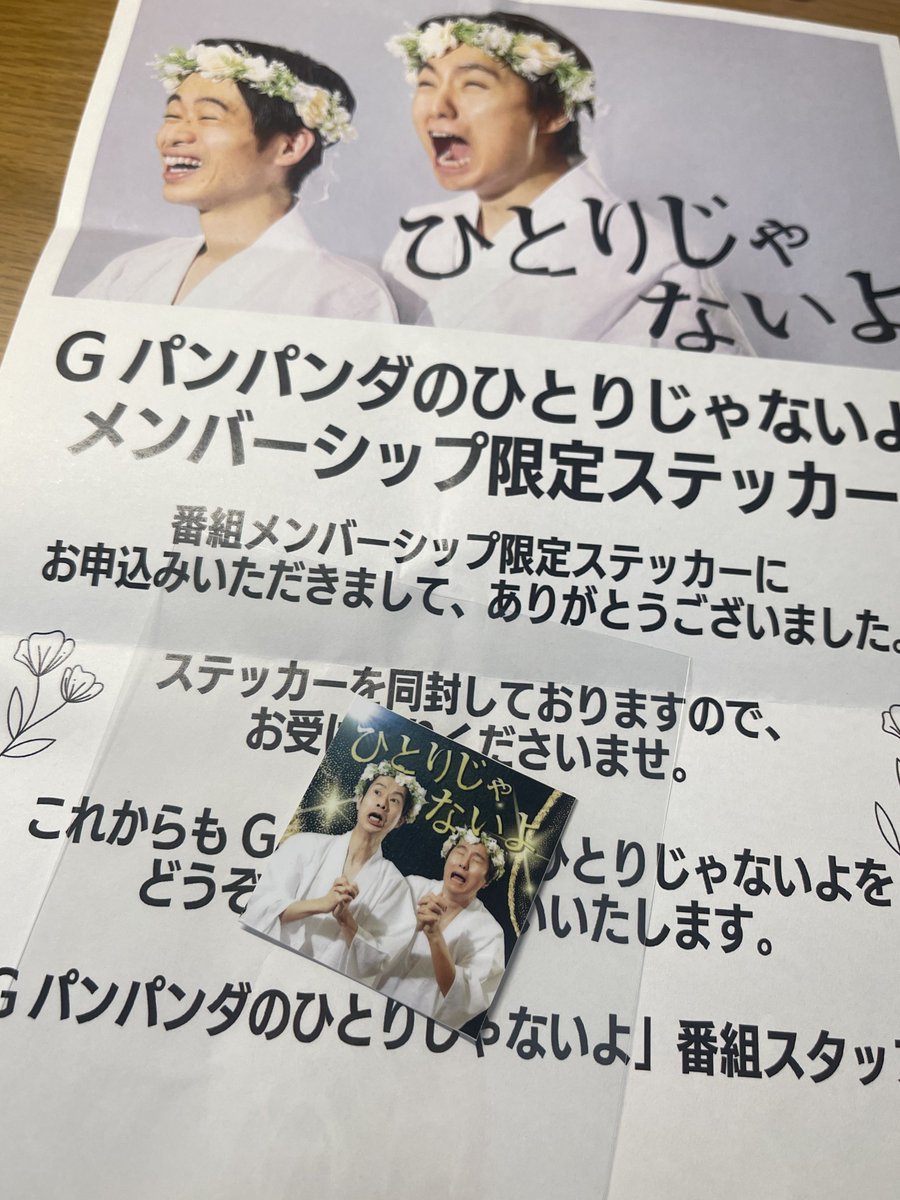 ひとりじゃ
ないよ
Gパンパンダのひとりじゃないよ
メンバーシップ限定ステッカー
番組メンバーシップ限定ステッカーに
お申込みいただきまして、ありがとうございました。
ステッカーを同封しておりますので、
お受け くださいませ。
ひとりじゃ
ないよ
これからもG ひとりじゃないよを
どうぞ いいたします。
Gパンパンダのひとりじゃないよ」番組スタッフ